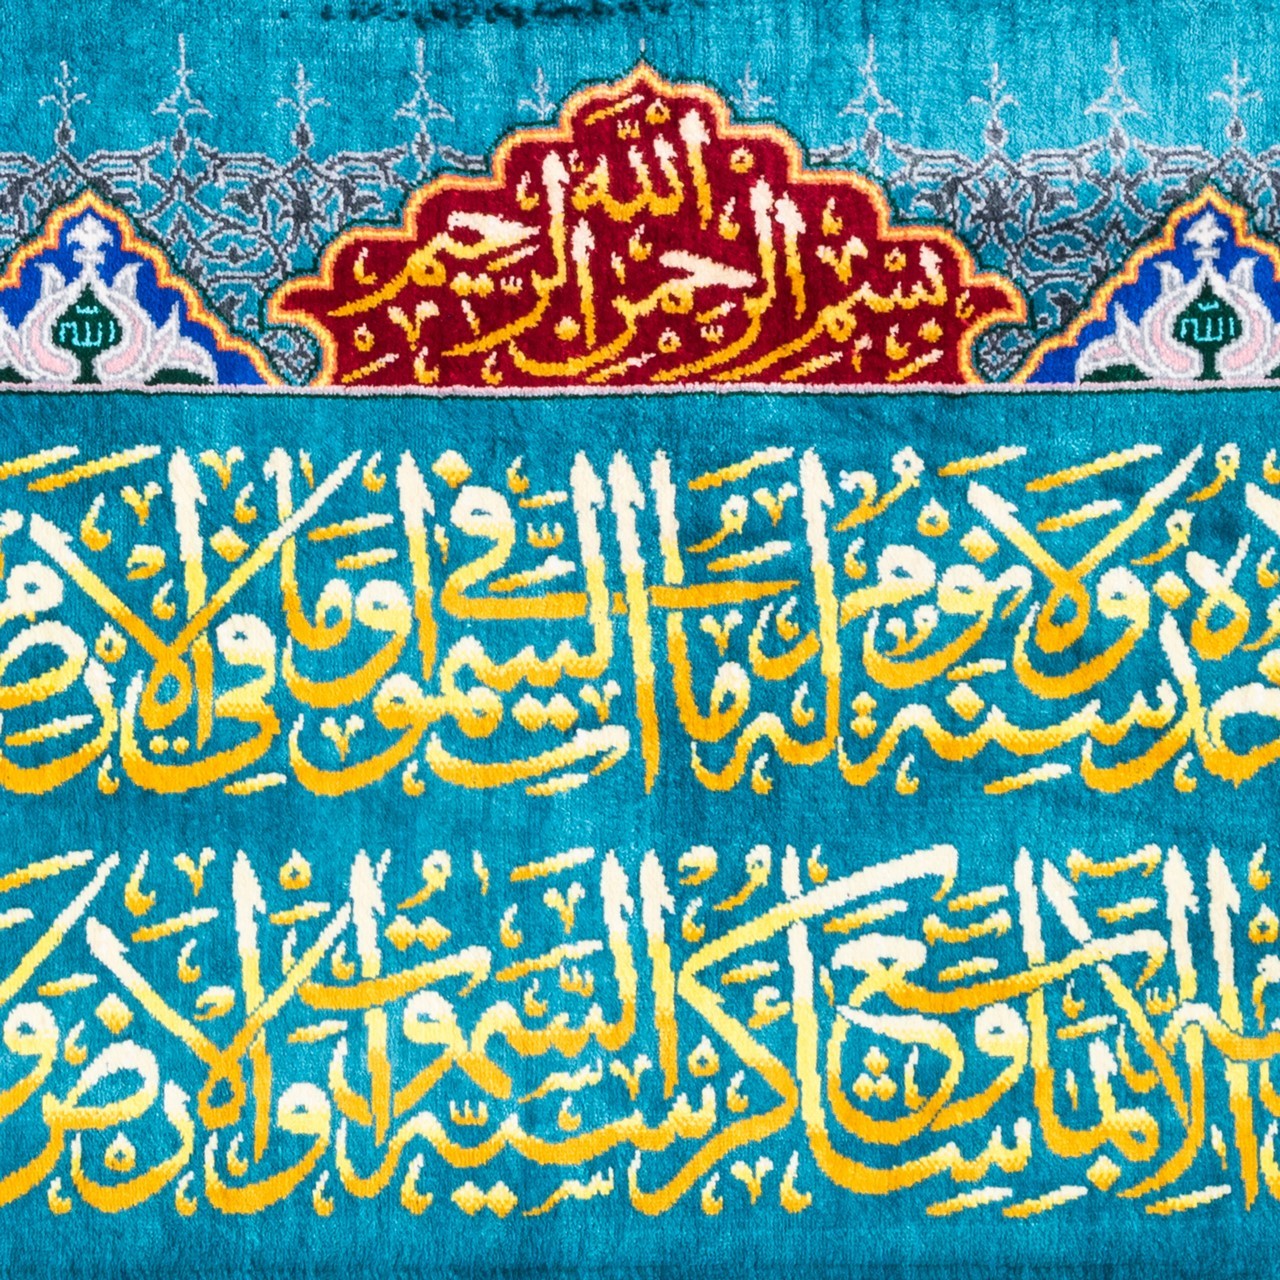 بِسْمِ اللَّهِ الرَّحْمَنِ الرَّحِيمِ
الله الله
سِنَةٌ وَلَا نَوْمٌ لَهُ مَا فِي السَّمَوَاتِ وَمَا فِي الْأَرْضِ
إِلَّا بِمَا شَاءَ وَسِعَ كُرْسِيُّهُ السَّمَوَاتِ وَالْأَرْضَ